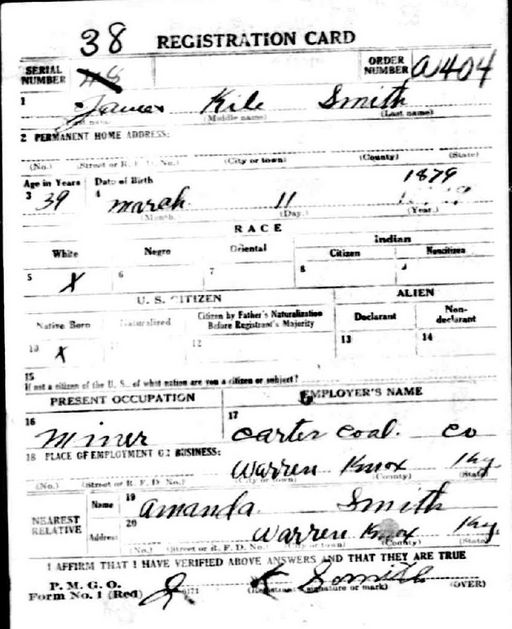 38 REGISTRATION CARD
SERIAL NUMBER ORDER NUMBER A404
1 James Kile Smith
(Middle name) (Last name)
2 PERMANENT HOME ADDRESS:
(No.) (Street or R. F. D. No.) (City or town) (County) (State)
Age in Years Date of Birth 1879
3 39 4 March 11
(Month.) (Day.) (Year.)
RACE
White Negro Oriental Indian
Citizen Noncitizen
5 X 6 7 8 9
U. S. CITIZEN ALIEN
Native Born Naturalized Citizen by Father's Naturalization Before Registrant's Majority Declarant Non-declarant
10 X 12 13 14
15
If not a citizen of the U. S., of what nation are you a citizen or subject?
PRESENT OCCUPATION EMPLOYER'S NAME
16 Miner 17 Carter Coal. Co
18 PLACE OF EMPLOYMENT OR BUSINESS:
Warren Knox Ky.
(No.) (Street or R. F. D. No.) (City or town) (County) (State)
NEAREST RELATIVE Name 19 Amanda Smith
Address 20 Warren Knox Ky.
(No.) (Street or R. F. D. No.) (City or town) (County) (State)
I AFFIRM THAT I HAVE VERIFIED ABOVE ANSWERS AND THAT THEY ARE TRUE
P. M. G. O.
Form No. 1 (Red) J K Smith
(Registrant's signature or mark) (OVER)